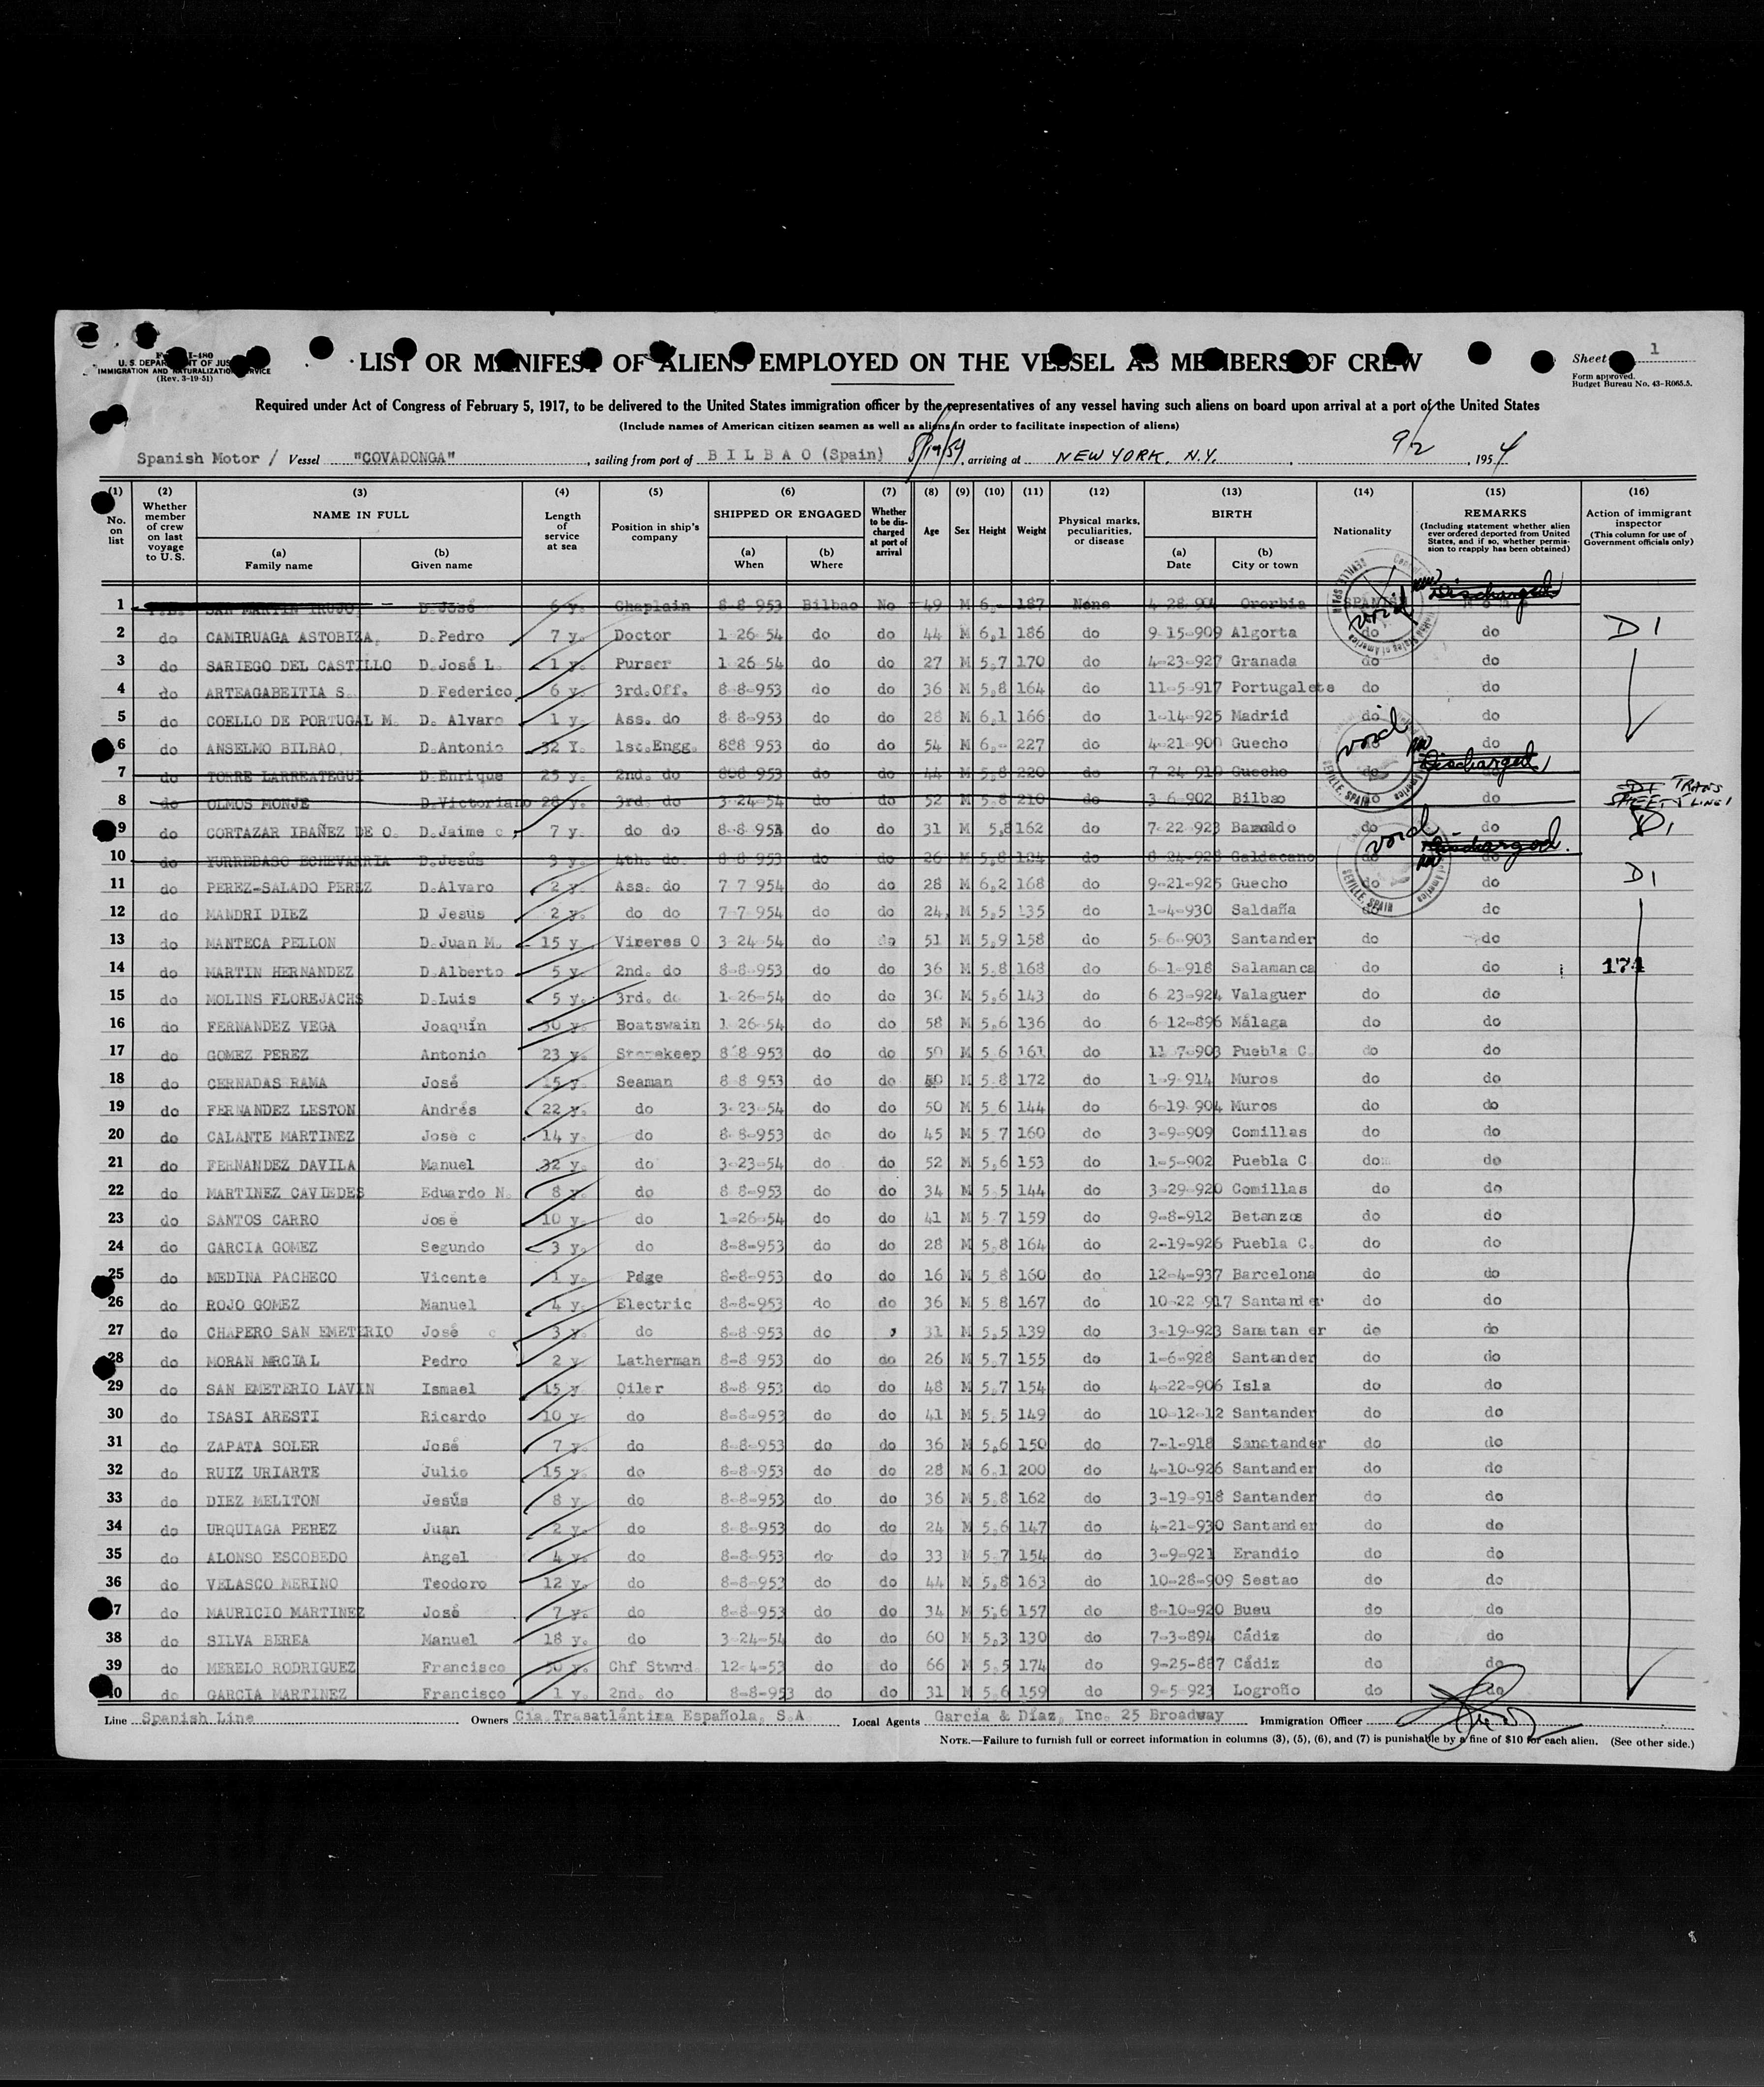 Form I-480
U. S. DEPARTMENT OF JUSTICE
IMMIGRATION AND NATURALIZATION SERVICE
(Rev. 3-19-51)
LIST OR MANIFEST OF ALIENS EMPLOYED ON THE VESSEL AS MEMBERS OF CREW
Sheet 1
Form approved.
Budget Bureau No. 43-R065.5.
Required under Act of Congress of February 5, 1917, to be delivered to the United States immigration officer by the representatives of any vessel having such aliens on board upon arrival at a port of the United States
(Include names of American citizen seamen as well as aliens in order to facilitate inspection of aliens)
Spanish Motor / Vessel "COVADONGA", sailing from port of BILBAO (Spain) 8/19/54, arriving at NEW YORK, N.Y., 9/2, 1954
(1) (2) (3) (4) (5) (6) (7) (8) (9) (10) (11) (12) (13) (14) (15) (16)
No. on list
Whether member of crew on last voyage to U. S.
NAME IN FULL
(a) Family name
(b) Given name
Length of service at sea
Position in ship's company
SHIPPED OR ENGAGED
(a) When
(b) Where
Whether to be discharged at port of arrival
Age
Sex
Height
Weight
Physical marks, peculiarities, or disease
BIRTH
(a) Date
(b) City or town
Nationality
REMARKS
(Including statement whether alien ever ordered deported from United States, and if so, whether permission to reapply has been obtained)
Action of immigrant inspector
(This column for use of Government officials only)
1 SAN MARTIN IRUJO D.José 6 y. Chaplain 8-8-953 Bilbao No 49 M 6,- 187 None 4-28-904 Ororbia SPANISH void Discharged
2 do CAMIRUAGA ASTOBIZA, D.Pedro 7 y. Doctor 1-26-54 do do 44 M 6,1 186 do 9-15-909 Algorta do do D1
3 do SARIEGO DEL CASTILLO D.José L. 1 y. Purser 1-26-54 do do 27 M 5,7 170 do 4-23-927 Granada do do
4 do ARTEAGABEITIA S. D Federico 6 y. 3rd.Off. 8-8-953 do do 36 M 5,8 164 do 11-5-917 Portugalete do do
5 do COELLO DE PORTUGAL M. D. Alvaro 1 y. Ass. do 8-8-953 do do 28 M 6,1 166 do 1-14-925 Madrid do do
6 do ANSELMO BILBAO, D.Antonio 32 Y. 1st.Engg. 888 953 do do 54 M 6,- 227 do 4-21-900 Guecho do do void
7 do TORRE LARREATEGUI D.Enrique 25 y. 2nd. do 808 953 do do 44 M 5,8 220 do 7-24-910 Guecho do Discharged
8 do OLMOS MONJE D.Victoriano 28 y. 3rd. do 3-24-54 do do 52 M 5,8 210 do 3-6-902 Bilbao do do D1 TRANS SHEET 5 LINE 1
9 do CORTAZAR IBAÑEZ DE O. D.Jaime c 7 y. do do 8-8-953 do do 31 M 5,8 162 do 7-22-923 do do D1 void
10 do YURREBASO ECHEVARRIA D.Jesús 3 y. 4th. do 8-8-953 do do 26 M 5,8 do 8-24-928 Galdacano do Discharged.
11 do PEREZ-SALADO PEREZ D.Alvaro 2 y. Ass. do 7-7-954 do do 28 M 6,2 168 do 9-21-925 Guecho do do D1
12 do MANDRI DIEZ D Jesus 2 y. do do 7-7-954 do do 24 M 5,5 135 do 1-4-930 Saldaña do do
13 do MANTECA PELLON D.Juan M. 15 y. Viveres O 3-24-54 do do 51 M 5,9 158 do 5-6-903 Santander do do
14 do MARTIN HERNANDEZ D.Alberto 5 y. 2nd. do 8-8-953 do do 36 M 5,8 168 do 6-1-918 Salamanca do do 174
15 do MOLINS FLOREJACHS D.Luis 5 y. 3rd. do 1-26-54 do do 30 M 5,6 143 do 6-23-924 Valaguer do do
16 do FERNANDEZ VEGA Joaquín 30 y. Boatswain 1-26-54 do do 58 M 5,6 136 do 6-12-896 Málaga do do
17 do GOMEZ PEREZ Antonio 23 y. Storekeep 8-8-953 do do 50 M 5,6 161 do 11-7-903 Puebla C. do do
18 do CERNADAS RAMA José 15 y. Seaman 8-8-953 do do M 5,8 172 do 1-9-914 Muros do do
19 do FERNANDEZ LESTON Andrés 22 y. do 3-23-54 do do 50 M 5,6 144 do 6-19-904 Muros do do
20 do CALANTE MARTINEZ Jose c 14 y. do 8-8-953 do do 45 M 5,7 160 do 3-9-909 Comillas do do
21 do FERNANDEZ DAVILA Manuel 32 y. do 3-23-54 do do 52 M 5,6 153 do 1-5-902 Puebla C do do
22 do MARTINEZ CAVIEDES Eduardo N. 8 y. do 8-8-953 do do 34 M 5,5 144 do 3-29-920 Comillas do do
23 do SANTOS CARRO José 10 y. do 1-26-54 do do 41 M 5,7 159 do 9-8-912 Betanzos do do
24 do GARCIA GOMEZ Segundo 3 y. do 8-8-953 do do 28 M 5,8 164 do 2-19-926 Puebla C. do do
25 do MEDINA PACHECO Vicente 1 y. Page 8-8-953 do do 16 M 5,8 160 do 12-4-937 Barcelona do do
26 do ROJO GOMEZ Manuel 4 y. Electric 8-8-953 do do 36 M 5,8 167 do 10-22-917 Santander do do
27 do CHAPERO SAN EMETERIO José c 3 y. do 8-8-953 do , 31 M 5,5 139 do 3-19-923 Sanatan er do do
28 do MORAN MRCIAL Pedro 2 y Latherman 8-8-953 do do 26 M 5,7 155 do 1-6-928 Santander do do
29 do SAN EMETERIO LAVIN Ismael 15 y Oiler 8-8-953 do do 48 M 5,7 154 do 4-22-906 Isla do do
30 do ISASI ARESTI Ricardo 10 y do 8-8-953 do do 41 M 5,5 149 do 10-12-12 Santander do do
31 do ZAPATA SOLER José 7 y. do 8-8-953 do do 36 M 5,6 150 do 7-1-918 Sanatander do do
32 do RUIZ URIARTE Julio 15 y. do 8-8-953 do do 28 M 6,1 200 do 4-10-926 Santander do do
33 do DIEZ MELITON Jesús 8 y. do 8-8-953 do do 36 M 5,8 162 do 3-19-918 Santander do do
34 do URQUIAGA PEREZ Juan 2 y. do 8-8-953 do do 24 M 5,6 147 do 4-21-930 Santander do do
35 do ALONSO ESCOBEDO Angel 4 y. do 8-8-953 do do 33 M 5,7 154 do 3-9-921 Erandio do do
36 do VELASCO MERINO Teodoro 12 y. do 8-8-953 do do 44 M 5,8 163 do 10-28-909 Sestao do do
37 do MAURICIO MARTINEZ José 7 y. do 8-8-953 do do 34 M 5,6 157 do 8-10-920 Bueu do do
38 do SILVA BEREA Manuel 18 y. do 3-24-54 do do 60 M 5,3 130 do 7-3-894 Cádiz do do
39 do MERELO RODRIGUEZ Francisco 50 y. Chf Stwrd. 12-4-53 do do 66 M 5,5 174 do 9-25-887 Cádiz do do
40 do GARCIA MARTINEZ Francisco 1 y. 2nd. do 8-8-953 do do 31 M 5,6 159 do 9-5-923 Logroño do do
Line Spanish Line Owners Cía.Trasatlántica Española, S.A. Local Agents García & Díaz, Inc. 25 Broadway Immigration Officer
NOTE.—Failure to furnish full or correct information in columns (3), (5), (6), and (7) is punishable by a fine of $10 for each alien. (See other side.)